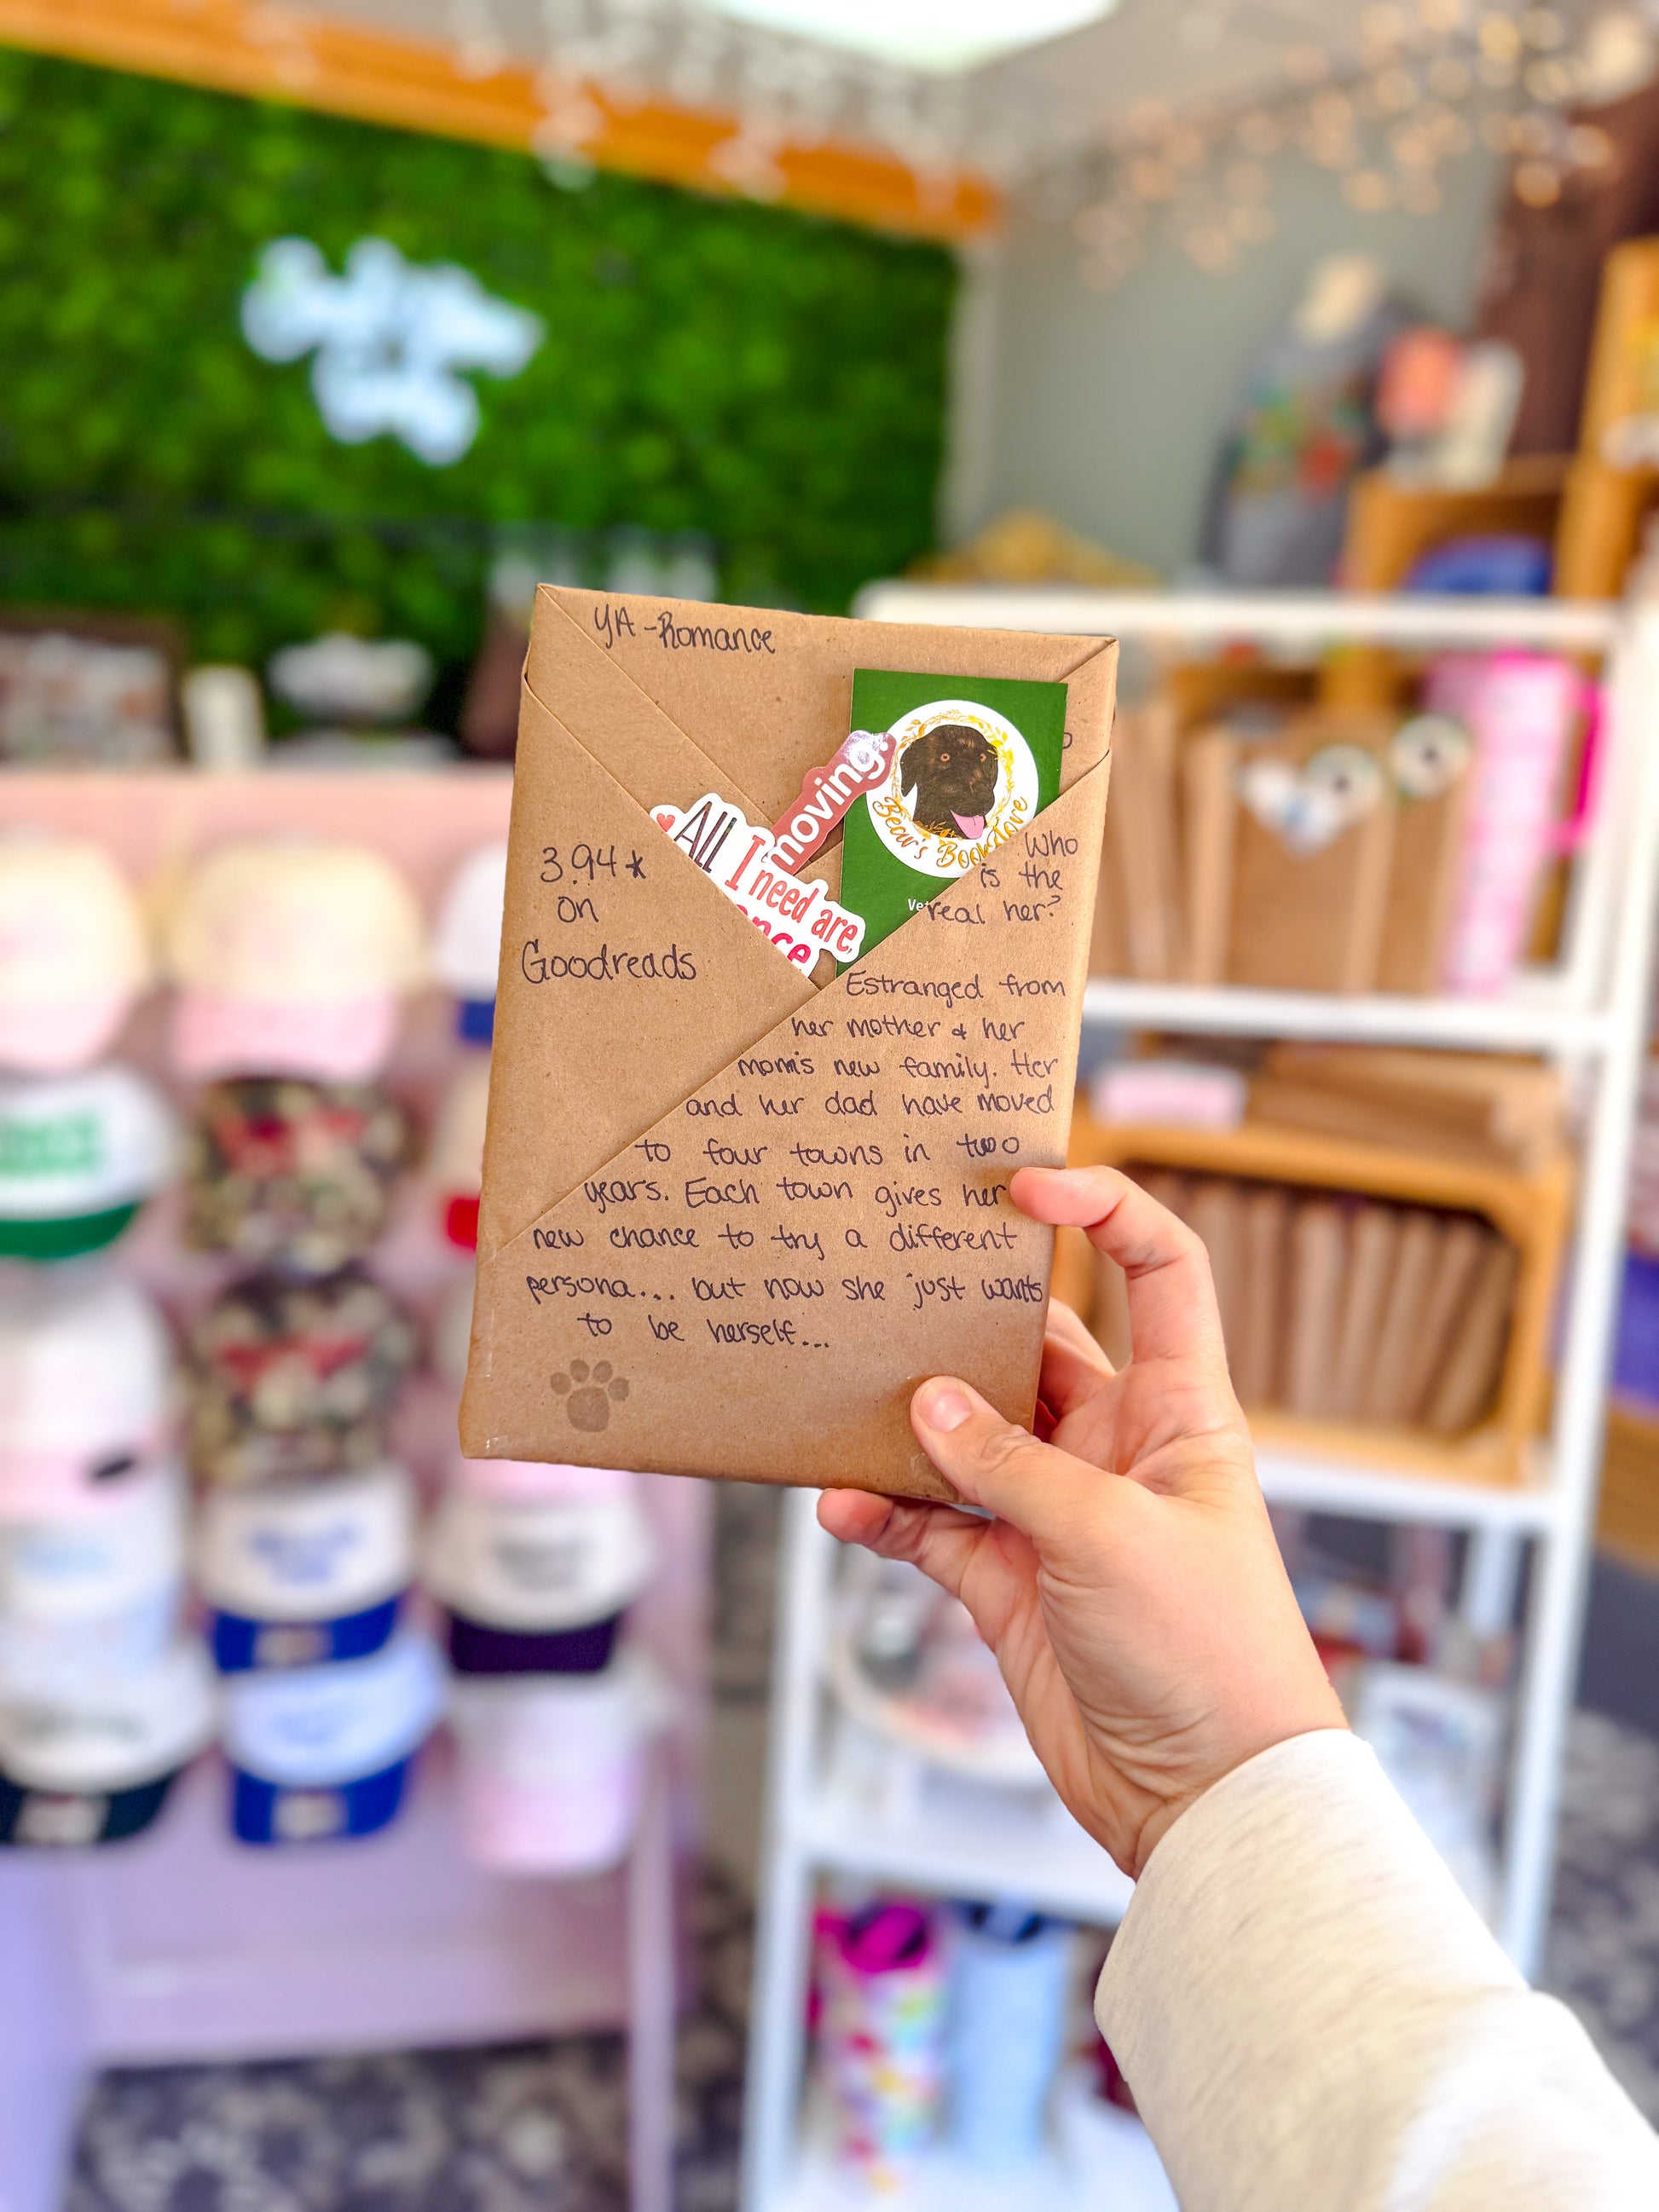 YA-Romance
moving.
All
I need are
Bear's Bookstore
3.94*
on
Goodreads
Who
is the
real her?
Estranged from
her mother & her
mom's new family. Her
and her dad have moved
to four towns in two
years. Each town gives her
new chance to try a different
persona... but now she just wants
to be herself...